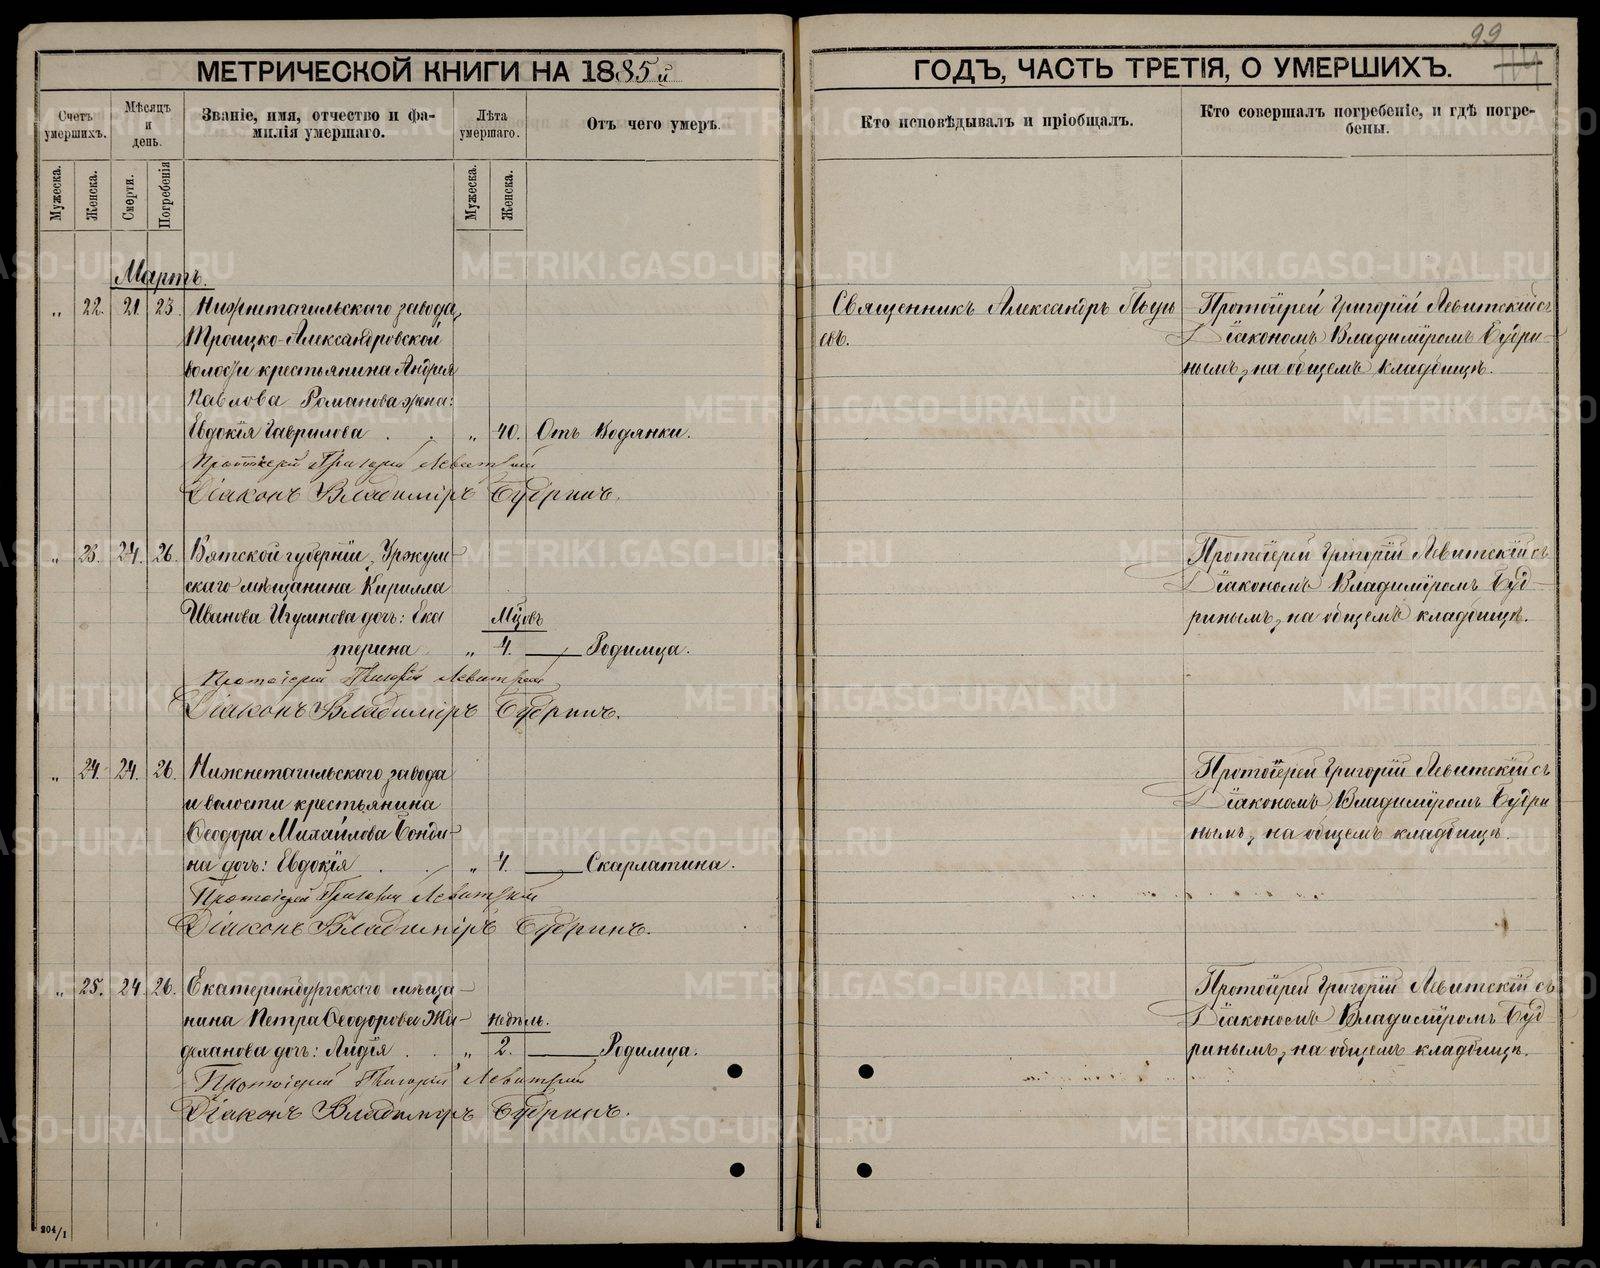 99
114
МЕТРИЧЕСКОЙ КНИГИ НА 1885й
ГОДЪ, ЧАСТЬ ТРЕТІЯ, О УМЕРШИХЪ.
Счетъ умершихъ.
Мѣсяцъ и день.
Званіе, имя, отчество и фамилія умершаго.
Лѣта умершаго.
Отъ чего умеръ.
Кто исповѣдывалъ и пріобщалъ.
Кто совершалъ погребеніе, и гдѣ погребены.
Мужеска.
Женска.
Смерти.
Погребенія
Мужеска.
Женска.
Мартъ.
„ 22. 21. 23. Нижнетагильскаго завода,
Троицко-Александровской
волости крестьянина Андрея
Павлова Романова жена:
Евдокія Гаврилова . . „ 40. Отъ Водянки.
Протоіерей Григорій Левитскій
Діаконъ Владиміръ Будринъ.
Священникъ Александръ
евъ.
Протоіерей Григорій Левитскій съ
Діакономъ Владиміромъ Будри-
нымъ, на общемъ кладбищѣ.
„ 23. 24. 26. Вятской губерніи, Уржум-
скаго мѣщанина Кирилла
Иванова Игумнова дочь: Ека
Мцовъ
терина „ 4. — Родимца.
Протоіерей Григорій Левитскій
Діаконъ Владиміръ Будринъ.
Протоіерей Григорій Левитскій съ
Діакономъ Владиміромъ Буд-
ринымъ, на общемъ кладбищѣ.
„ 24. 24. 26. Нижнетагильскаго завода
и волости крестьянина
Ѳеодора Михайлова Бонди-
на дочь: Евдокія . . „ 4. — Скарлатина.
Протоіерей Григорій Левитскій
Діаконъ Владиміръ Будринъ.
Протоіерей Григорій Левитскій съ
Діакономъ Владиміромъ Будри
нымъ, на общемъ кладбищѣ.
„ 25. 24. 26. Екатеринбургскаго мѣща-
нина Петра Ѳеодорова Жи-
недѣль.
деханова дочь: Лидія . . „ 2. — Родимца.
Протоіерей Григорій Левитскій
Діаконъ Владиміръ Будринъ.
Протоіерей Григорій Левитскій съ
Діакономъ Владиміромъ Буд
ринымъ, на общемъ кладбищѣ.
204/1
METRIKI.GASO-URAL.RU